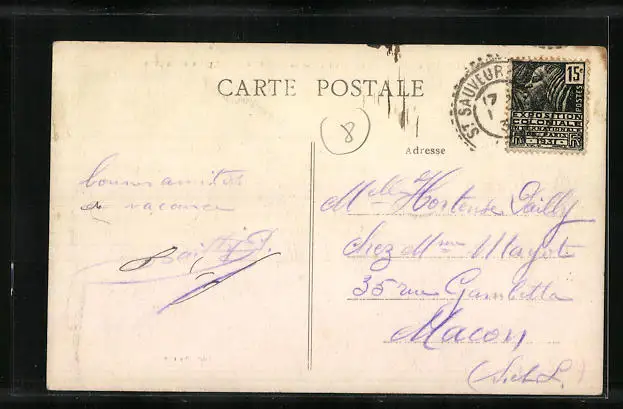 CARTE POSTALE
8
ST SAUVEUR
17
15c
POSTES
EXPOSITION
COLONIALE
INTERNATIONALE
PARIS 1931
Adresse
bonnes amitiés
de vacances
Melle Hortense
chez Mme
35 rue Gambetta
Macon
(S. et L.